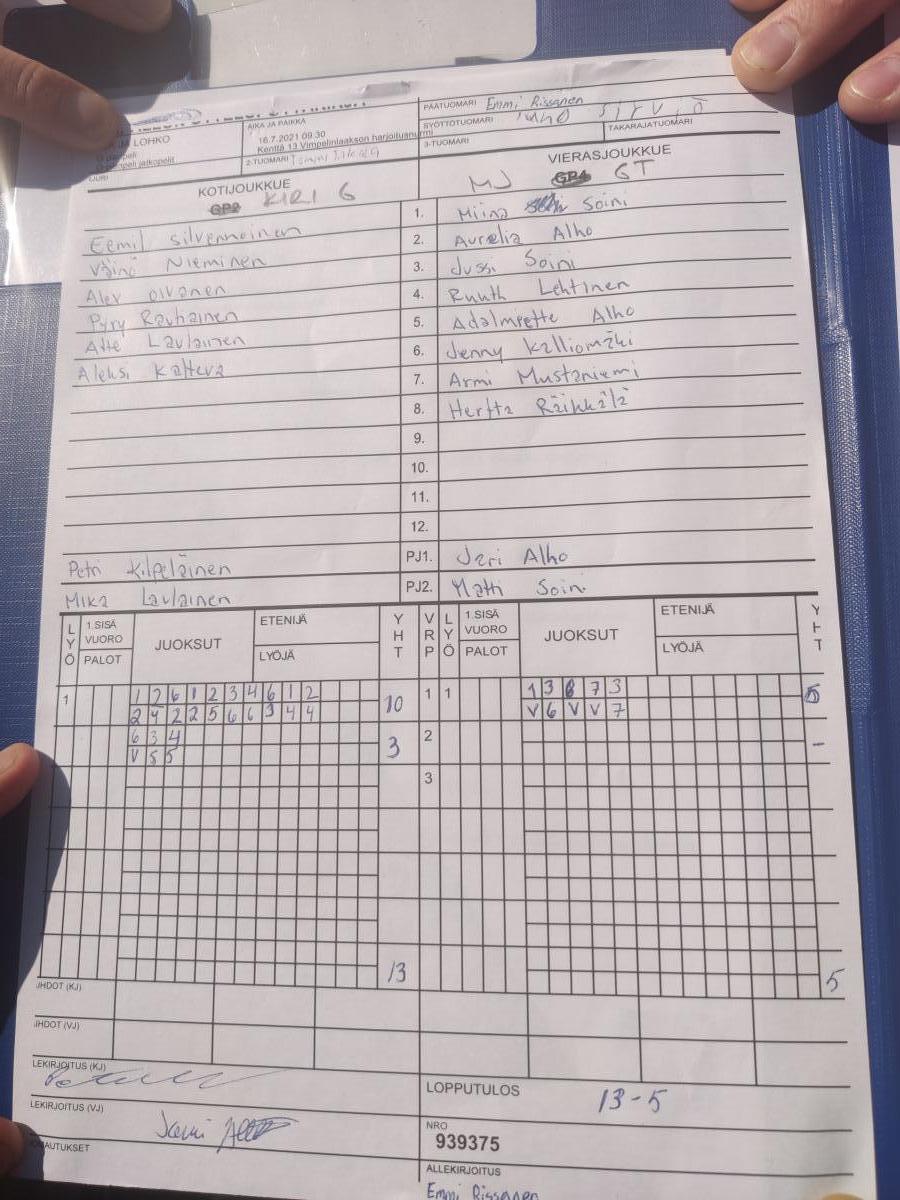 PÄÄTUOMARI Emmi Rissanen
LOHKO
AIKA JA PAIKKA
16.7.2021 09.30
Kenttä 13 Vimpelinlaakson harjoitusnurmi
SYÖTTÖTUOMARI
2-TUOMARI
3-TUOMARI
TAKARAJATUOMARI
KOTIJOUKKUE
KIRI 6
VIERASJOUKKUE
MJ GT
1. Miina Soini
Eemil Silvennoinen 2. Aurelia Alho
Väinö Nieminen 3. Jussi Soini
Alex Oivanen 4. Ruuth Lehtinen
Pyry Rauhainen 5. Adalmiette Alho
Atte Laulainen 6. Jenny Kalliomäki
Aleksi Katteva 7. Armi Mustaniemi
8. Hertta Räikkälä
9.
10.
11.
12.
Petri Kilpeläinen PJ1. Jari Alho
Mika Laulainen PJ2. Matti Soini
LYÖ 1.SISÄ VUORO PALOT JUOKSUT ETENIJÄ LYÖJÄ YHT VRP LYÖ 1.SISÄ VUORO PALOT JUOKSUT ETENIJÄ LYÖJÄ YHT
1 1 2 6 1 2 3 4 6 1 2 10 1 1 1 3 8 7 3 5
2 4 2 2 5 6 6 3 4 4 V 6 V V 7
6 3 4 3 2 –
V 5 5
3
13 5
LOPPUTULOS 13-5
NRO
939375
ALLEKIRJOITUS
Emmi Rissanen